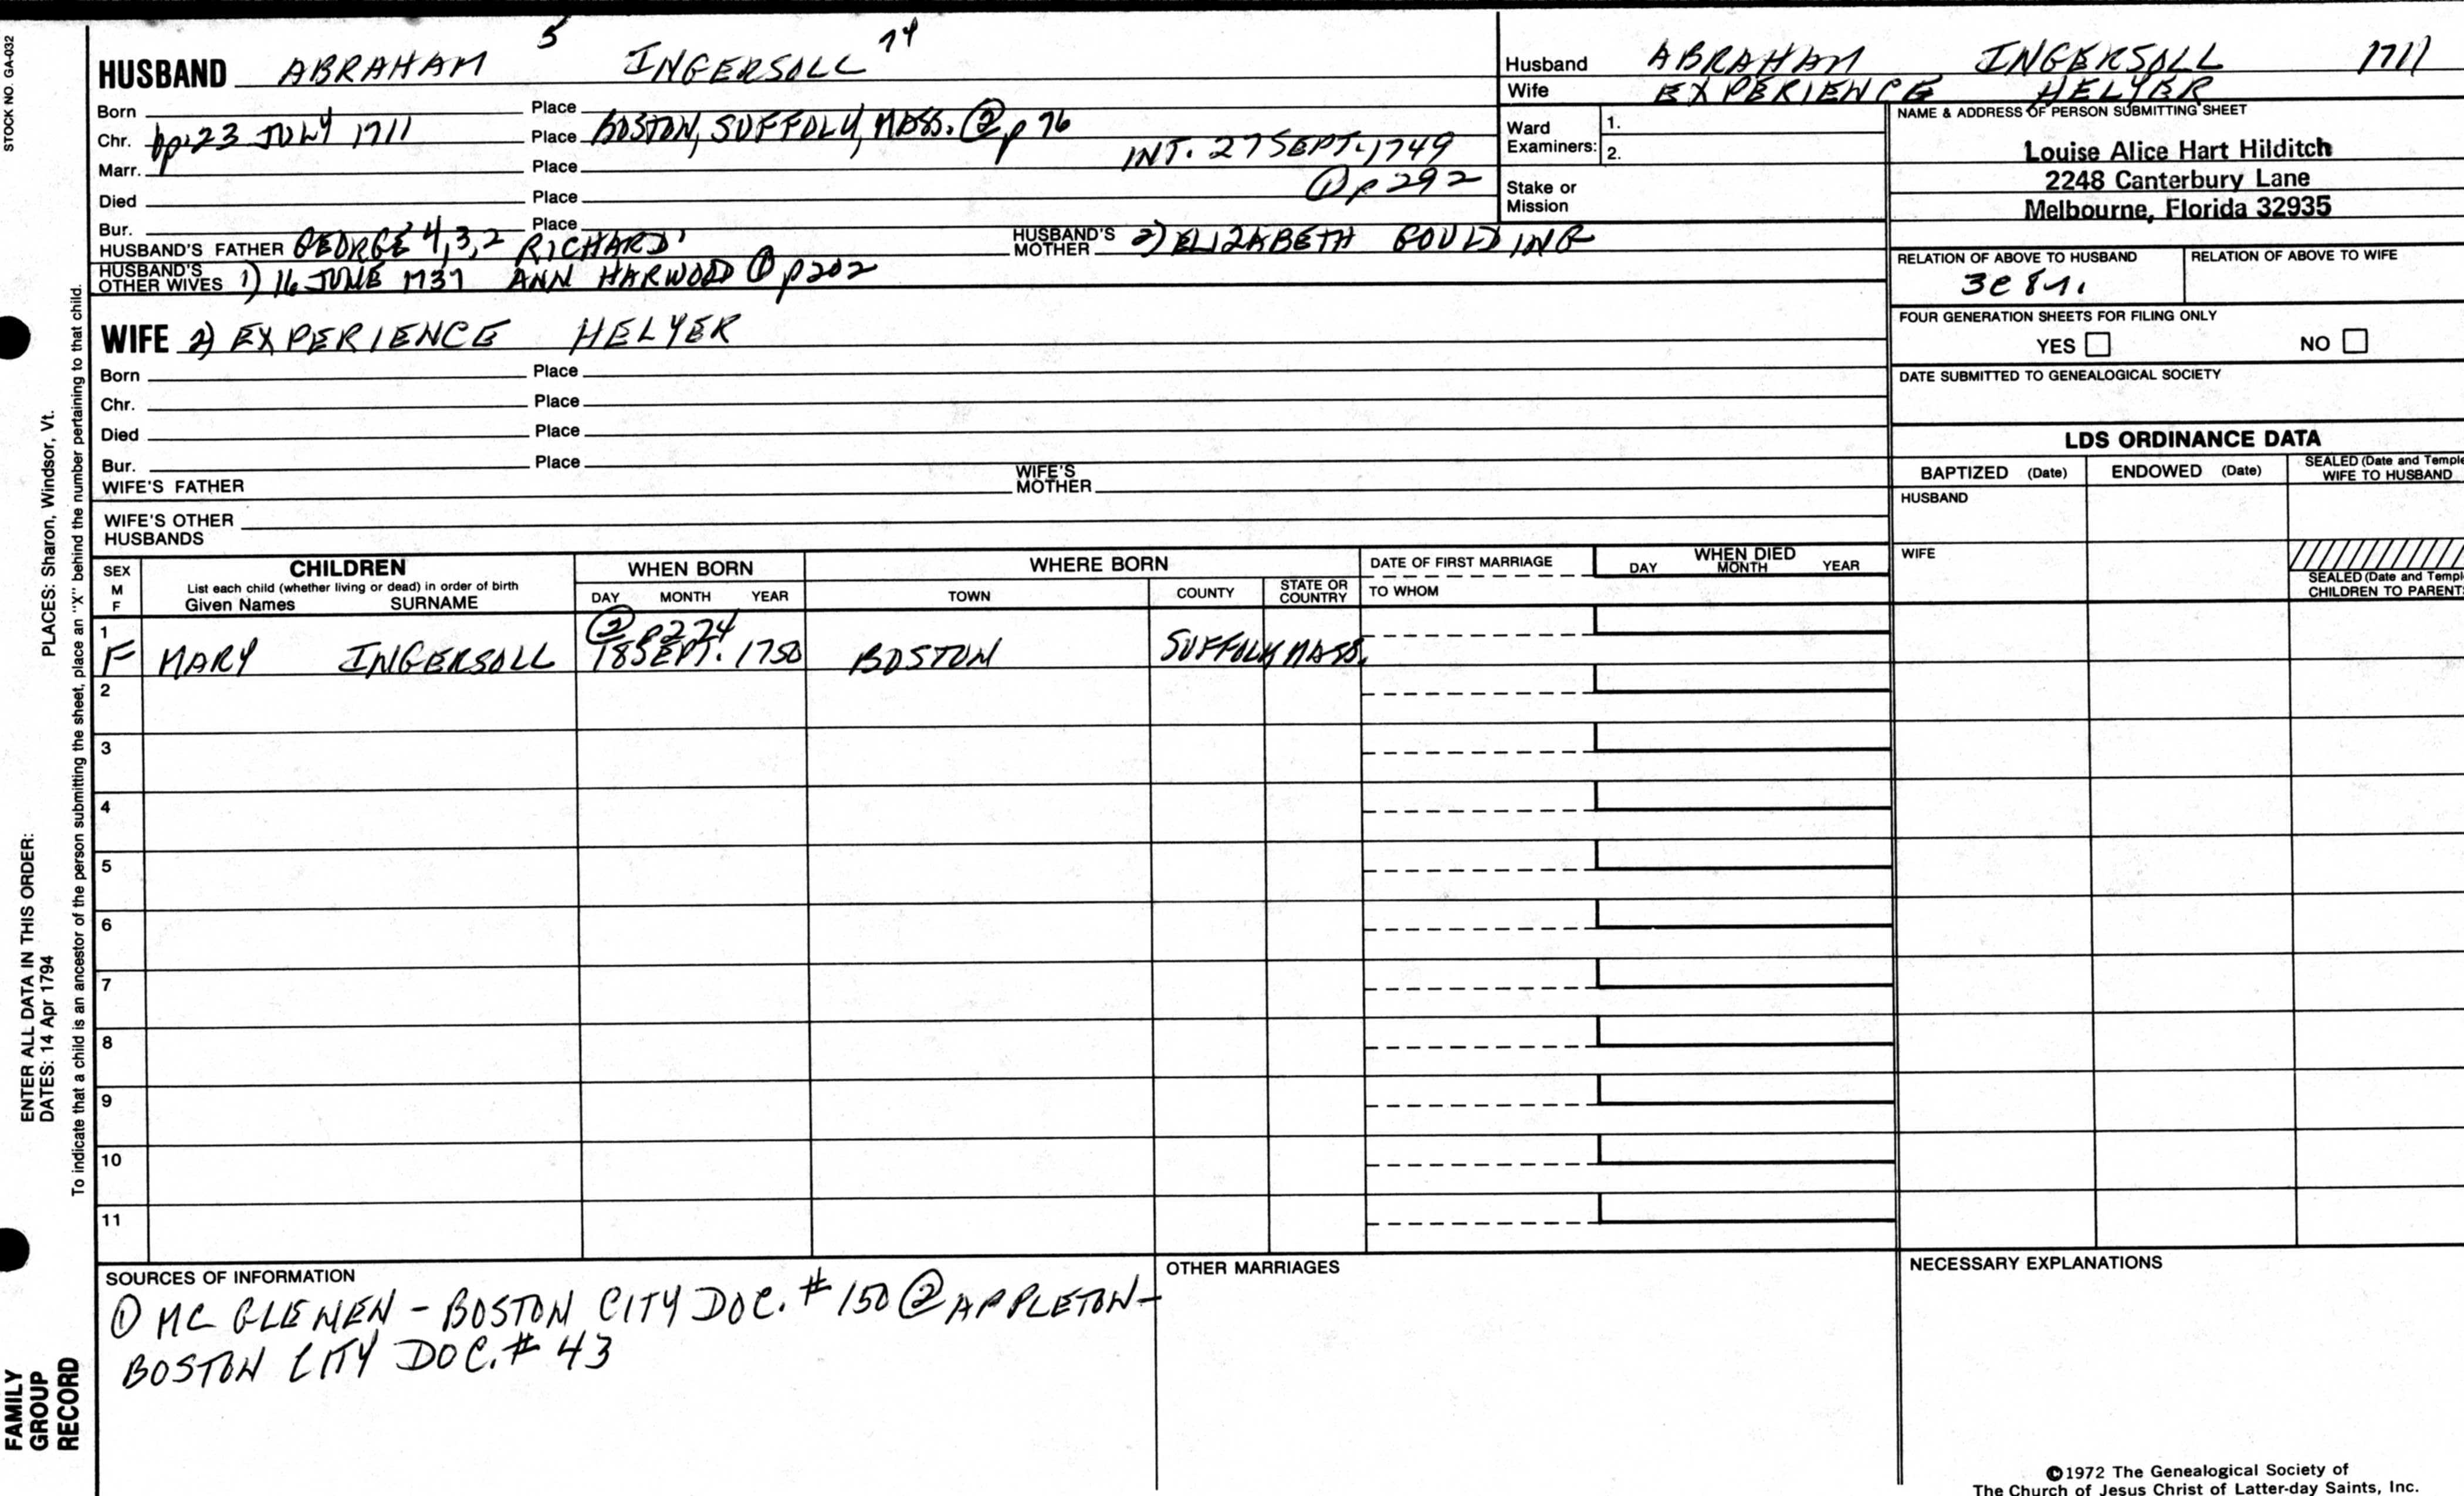 STOCK NO. GA-032
HUSBAND ABRAHAM 5 INGERSOLL 74
Born Place
Chr. bp. 23 JULY 1711 Place BOSTON, SUFFOLK, MASS. ② p 76
Marr. Place INT. 27 SEPT. 1749
① p 292
Died Place
Bur. Place
HUSBAND'S FATHER GEORGE 4,3,2 RICHARD' HUSBAND'S MOTHER 2) ELIZABETH GOULDING
HUSBAND'S OTHER WIVES 1) 16 JUNE 1737 ANN HARWOOD ① p 202
WIFE 2) EXPERIENCE HELYER
Born Place
Chr. Place
Died Place
Bur. Place
WIFE'S FATHER WIFE'S MOTHER
WIFE'S OTHER HUSBANDS
Husband ABRAHAM INGERSOLL 1711
Wife EXPERIENCE HELYER
Ward Examiners: 1.
2.
Stake or Mission
NAME & ADDRESS OF PERSON SUBMITTING SHEET
Louise Alice Hart Hilditch
2248 Canterbury Lane
Melbourne, Florida 32935
RELATION OF ABOVE TO HUSBAND RELATION OF ABOVE TO WIFE
3c 8r.
FOUR GENERATION SHEETS FOR FILING ONLY
YES NO
DATE SUBMITTED TO GENEALOGICAL SOCIETY
LDS ORDINANCE DATA
BAPTIZED (Date) ENDOWED (Date) SEALED (Date and Temple
WIFE TO HUSBAND
HUSBAND
WIFE
SEALED (Date and Templ
CHILDREN TO PARENTS
SEX M F
CHILDREN
List each child (whether living or dead) in order of birth
Given Names SURNAME
WHEN BORN
DAY MONTH YEAR
WHERE BORN
TOWN COUNTY STATE OR COUNTRY
DATE OF FIRST MARRIAGE
TO WHOM
WHEN DIED
DAY MONTH YEAR
② p 274
1 F MARY INGERSOLL 18 SEPT. 1750 BOSTON SUFFOLK MASS.
2
3
4
5
6
7
8
9
10
11
SOURCES OF INFORMATION
① MC GLENEN - BOSTON CITY DOC. # 150 ② APPLETON -
BOSTON CITY DOC. # 43
OTHER MARRIAGES
NECESSARY EXPLANATIONS
©1972 The Genealogical Society of
The Church of Jesus Christ of Latter-day Saints, Inc.
ENTER ALL DATA IN THIS ORDER:
DATES: 14 Apr 1794 PLACES: Sharon, Windsor, Vt.
To indicate that a child is an ancestor of the person submitting the sheet, place an "X" behind the number pertaining to that child.
FAMILY
GROUP
RECORD